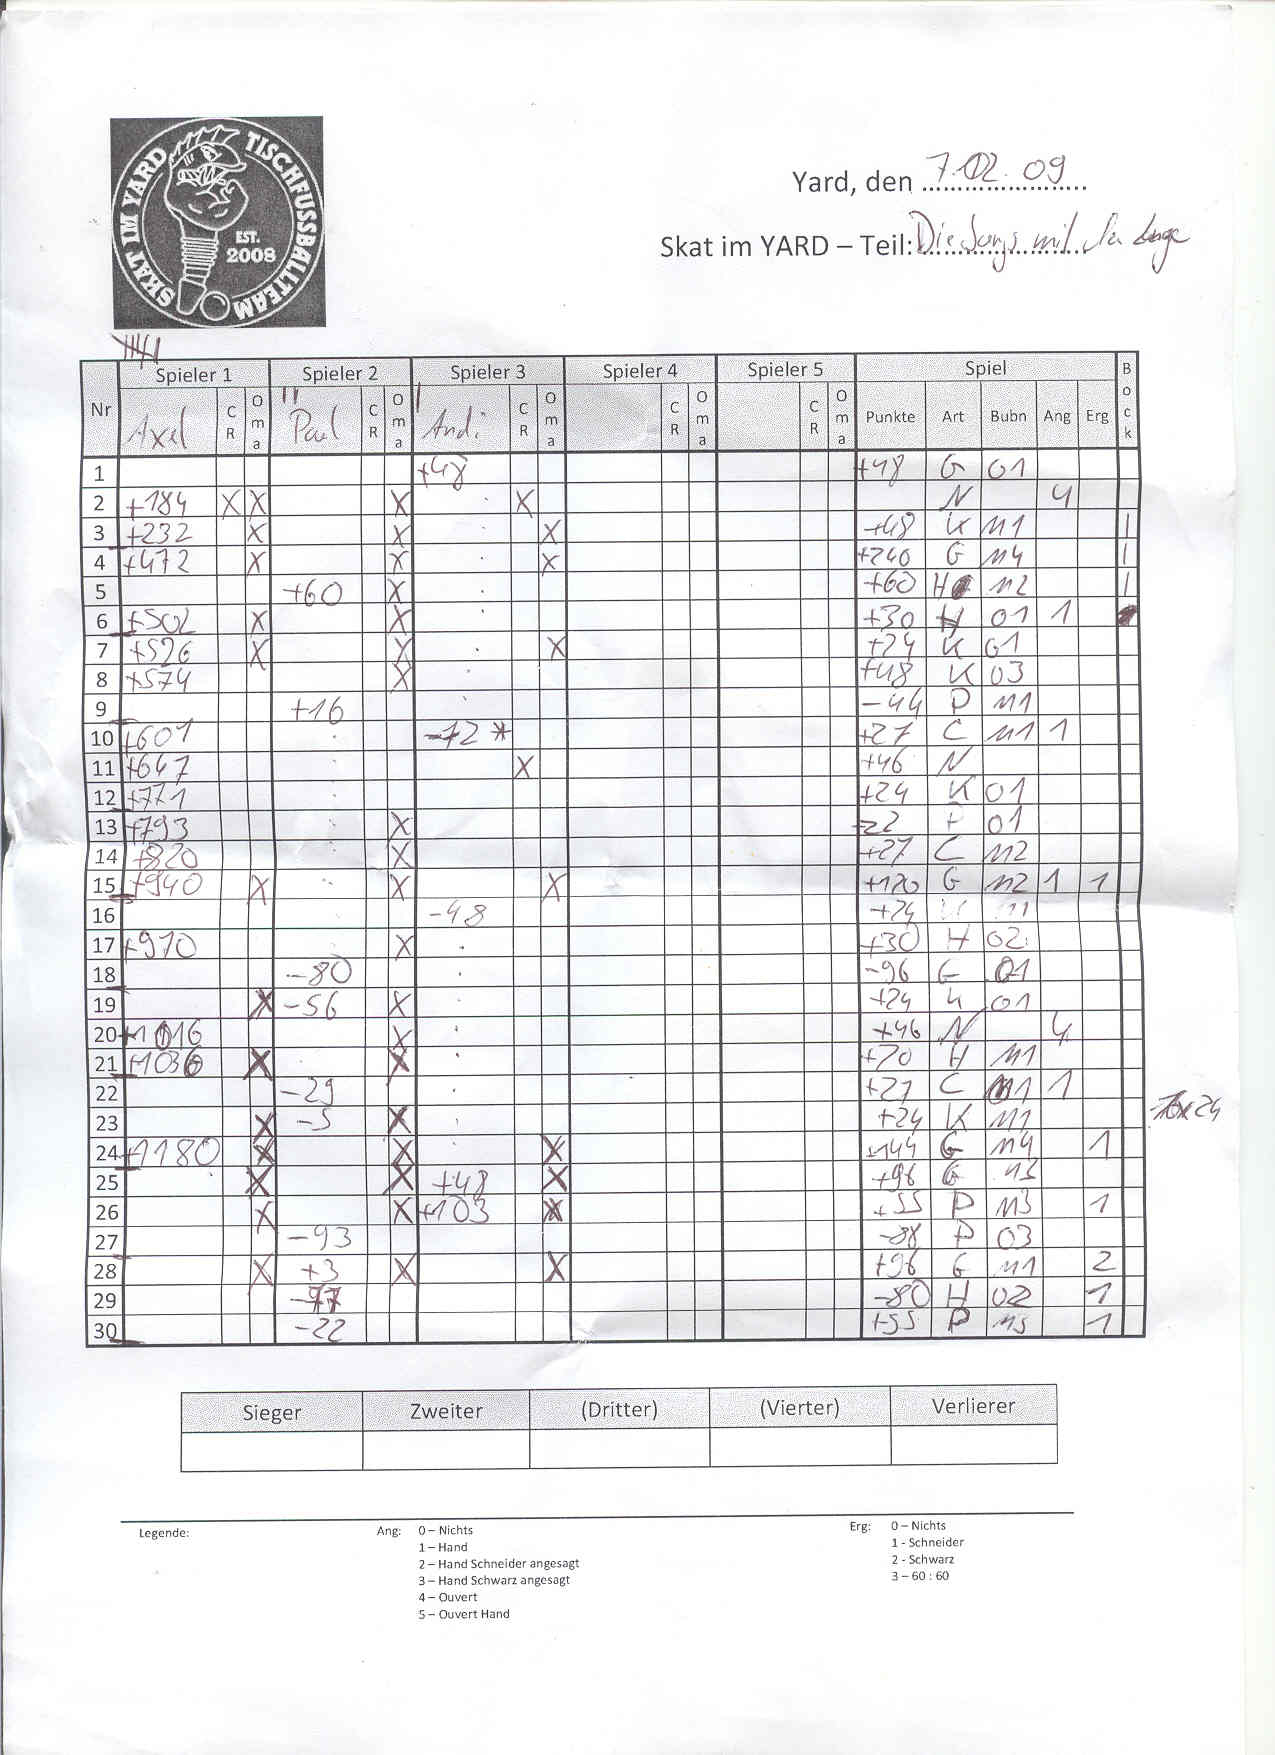 SKAT IM YARD TISCHFUSSBALLTEAM
EST.
2008
Yard, den 7.02.09
Skat im YARD – Teil: Die Jungs mit
Nr Spieler 1 Spieler 2 Spieler 3 Spieler 4 Spieler 5 Spiel Bock
Axel CR Oma Paul CR Oma Andi CR Oma CR Oma CR Oma Punkte Art Bubn Ang Erg
1 +48 +48 G 01
2 +184 X X X X N 4
3 +232 X X X +48 K M1 1
4 +472 X X X +240 G M4 1
5 +60 X +60 H M2 1
6 +502 X X +30 H 01 1
7 +526 X X X +24 K 01
8 +574 X +48 K 03
9 +16 -44 P M1
10 +601 -72 * +27 C M1 1
11 +647 X +46 N
12 +771 +24 K 01
13 +793 X 22 P 01
14 +820 X +27 C M2
15 +940 X X X +120 G M2 1 1
16 -48 +24
17 +970 X +30 H 02
18 -80 -96 G 01
19 X -56 X +24 01
20 +1016 X +46 N 4
21 +1036 X X +20 H M1
22 -29 +27 C M1 1
23 X -5 X +24 K M1 24
24 +1180 X X X +144 G M4 1
25 X X +48 X +96 G M3
26 X X +103 X +55 P M3 1
27 -93 -88 P 03
28 X +3 X X +96 G M1 2
29 -77 -80 H 02 1
30 -22 +55 P M3 1
Sieger Zweiter (Dritter) (Vierter) Verlierer
Legende: Ang: 0 – Nichts Erg: 0 – Nichts
1 – Hand 1 - Schneider
2 – Hand Schneider angesagt 2 - Schwarz
3 – Hand Schwarz angesagt 3 – 60 : 60
4 – Ouvert
5 – Ouvert Hand